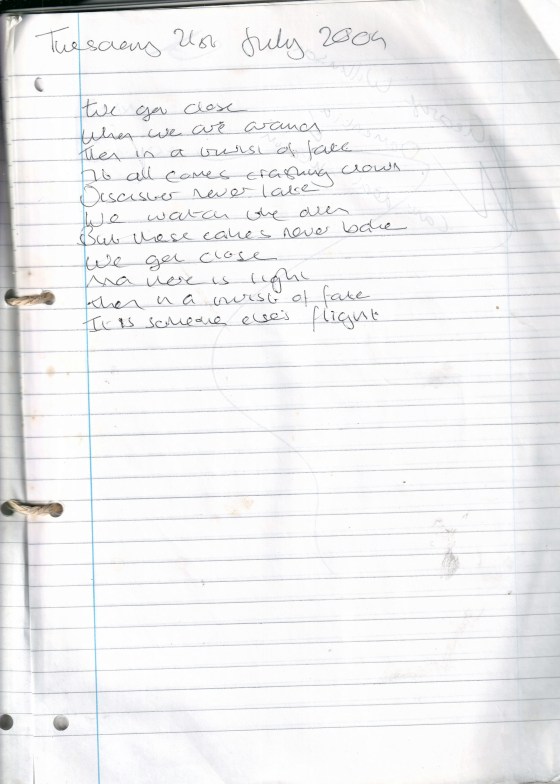 Tuesday 21st July 2009
We get close
When we are around
Then in a twist of fate
It all comes crashing down
Disaster never late
We watch the oven
But these cakes never bake
We get close
And there is light
Then in a twist of fate
It is someone else's flight